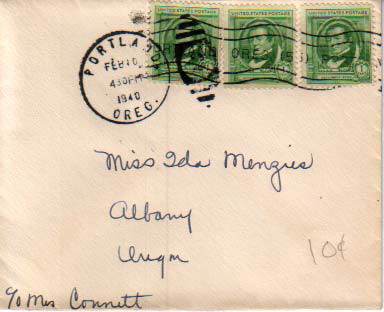 UNITED STATES POSTAGE UNITED STATES POSTAGE UNITED STATES POSTAGE
PORTLAND
FEB 10
430 PM
1940
OREG.
1¢
Miss Ida Menzies
Albany
Oregon
10¢
c/o Mrs Connett